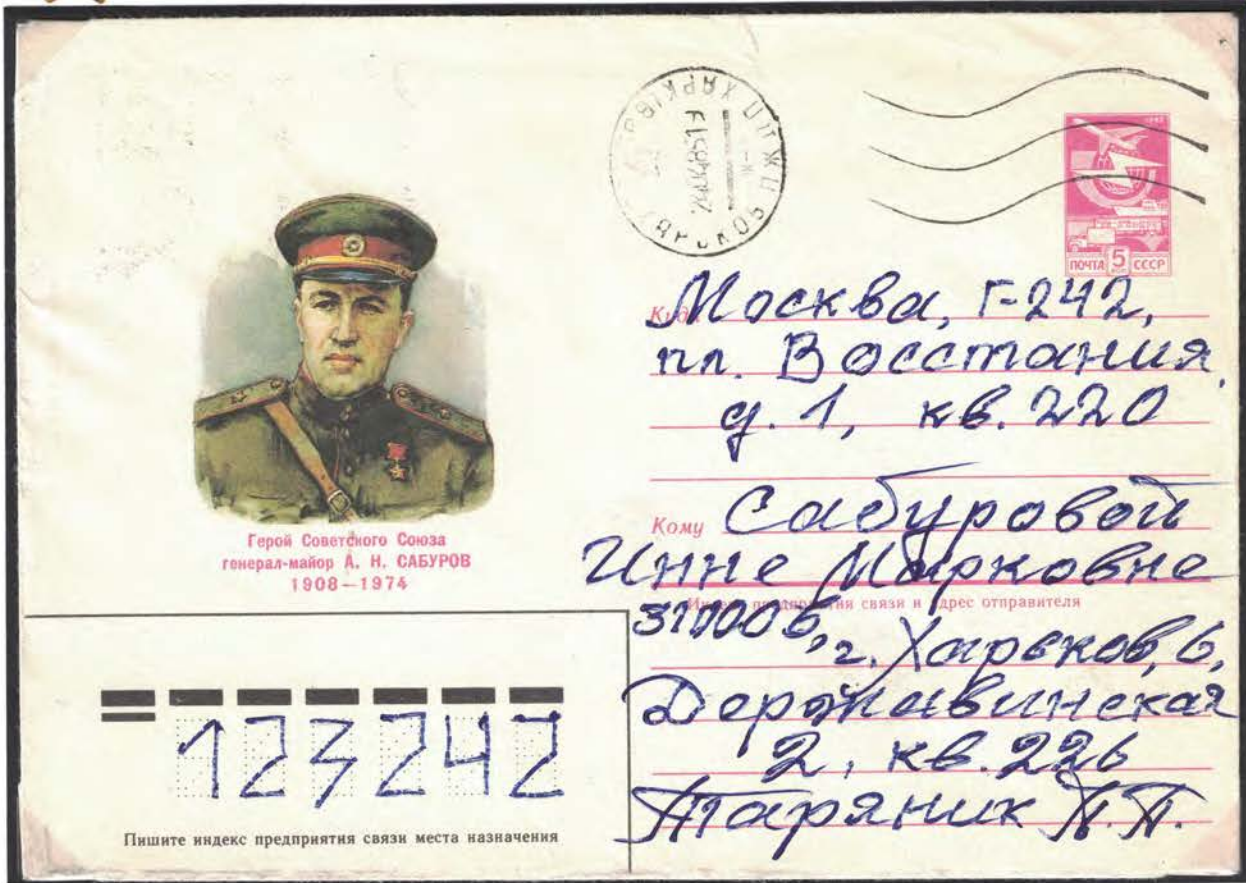 ПОЧТА 5 СССР
Куда Москва, Г-242,
пл. Восстания,
д. 1, кв. 220
Кому Сабуровой
Инне Марковне
Индекс предприятия связи и адрес отправителя
310006, г. Харьков, 6,
Державинская
2, кв. 226
Таряник П.П.
Герой Советского Союза
генерал-майор А. Н. САБУРОВ
1908—1974
123242
Пишите индекс предприятия связи места назначения